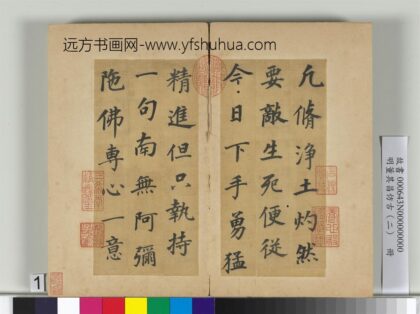 远方书画网-www.yfshuhua.com
凡脩淨土灼然
要敵生死便従
今日下手勇猛
精進但只執持
一句南無阿彌
陁佛專心一意
故書000643N000000000
明董其昌仿古(二) 冊
1